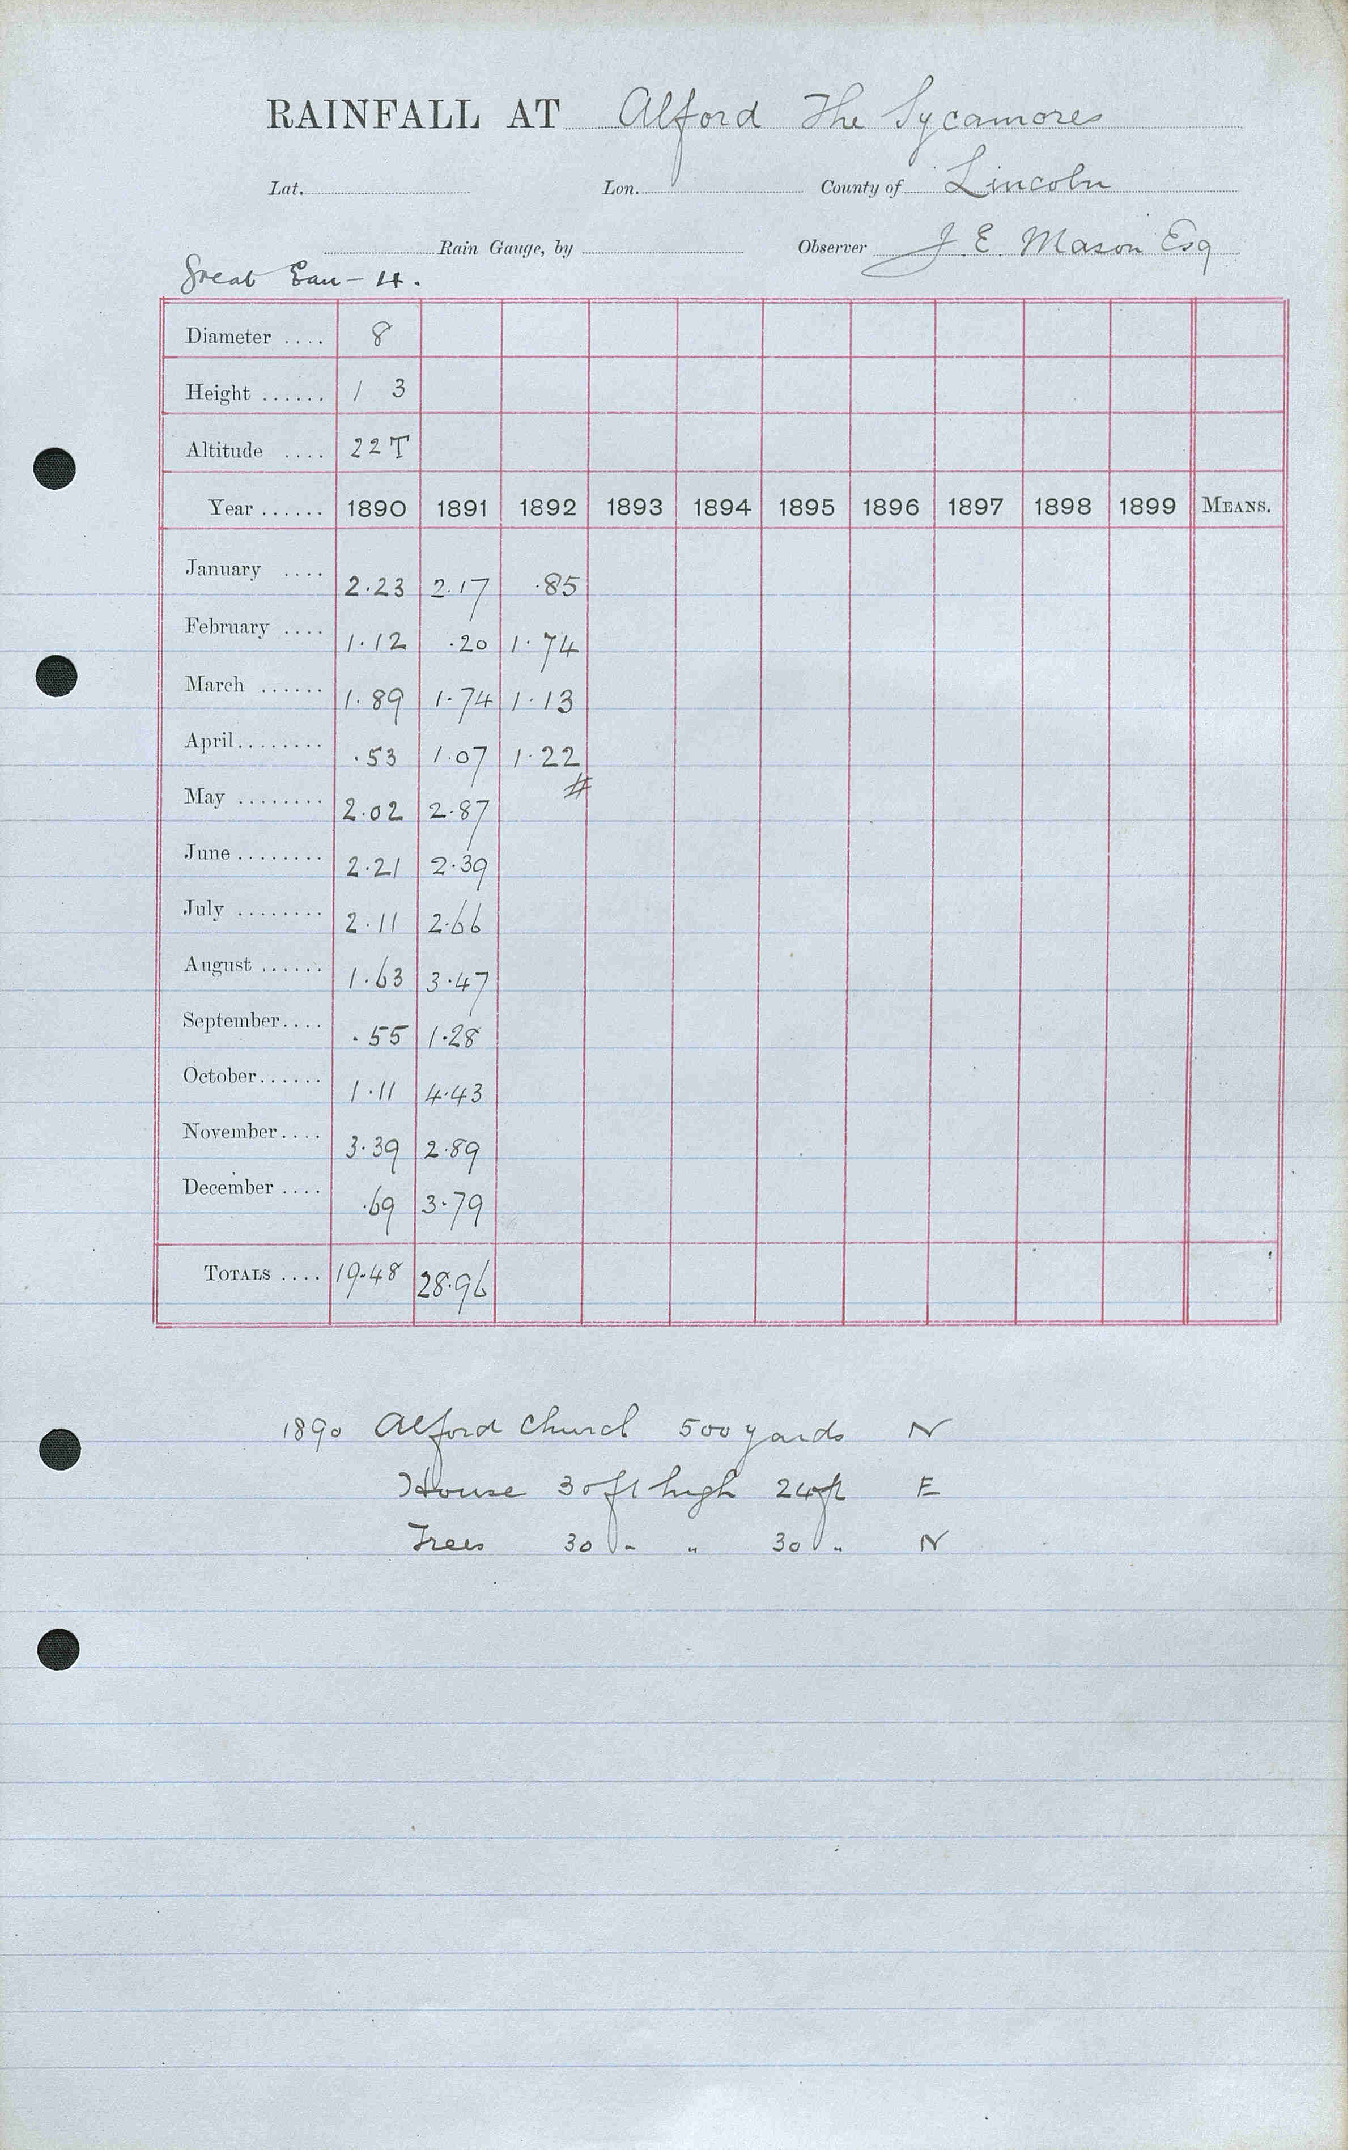 RAINFALL AT Alford The Sycamores
Lat. Lon. County of Lincoln
Rain Gauge, by Observer J. E. Mason Esq
Great Eau - 4.
Diameter .... 8
Height ...... 1 3
Altitude .... 22 T
Year ...... 1890 1891 1892 1893 1894 1895 1896 1897 1898 1899 MEANS.
January .... 2.23 2.17 .85
February .... 1.12 .20 1.74
March ...... 1.89 1.74 1.13
April........ .53 1.07 1.22
May ........ 2.02 2.87 #
June ........ 2.21 2.39
July ........ 2.11 2.66
August ...... 1.63 3.47
September.... .55 1.28
October...... 1.11 4.43
November.... 3.39 2.89
December .... .69 3.79
TOTALS .... 19.48 28.96
1890 Alford Church 500 yards N
House 30 ft high 24 ft E
Trees 30 " " 30 " N